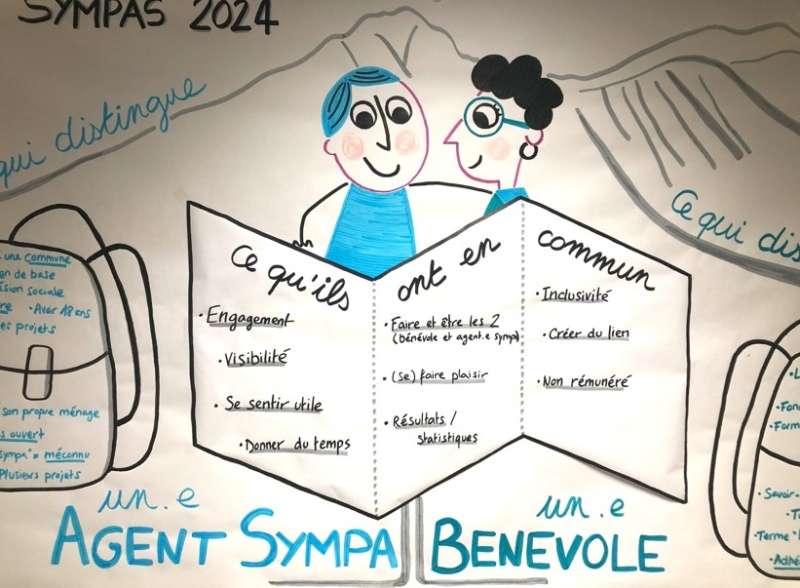 SYMPAS 2024
qui distingue
Ce qui dis
une commune
de base
sion sociale
• Avoir 18 ans
es projets
son propre ménage
ouvert
sympa" = méconnu
Plusieurs projets
Ce qu'ils
• Engagement
• Visibilité
• Se sentir utile
• Donner du temps
ont en
• Faire et être les 2
(bénévole et agent.e sympa)
• (se) faire plaisir
• Résultats /
statistiques
commun
• Inclusivité
• Créer du lien
• Non rémunéré
• L
• Fon
• Form
• Savoir-
• T
• Terme "
• Adhé
un.e
AGENT SYMPA
un.e
BENEVOLE